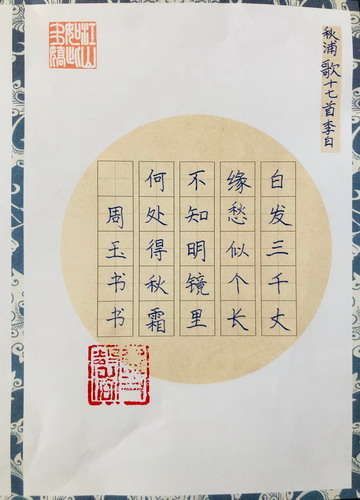 秋浦歌十七首李白
白发三千丈
缘愁似个长
不知明镜里
何处得秋霜
周玉书书
江山如此多娇